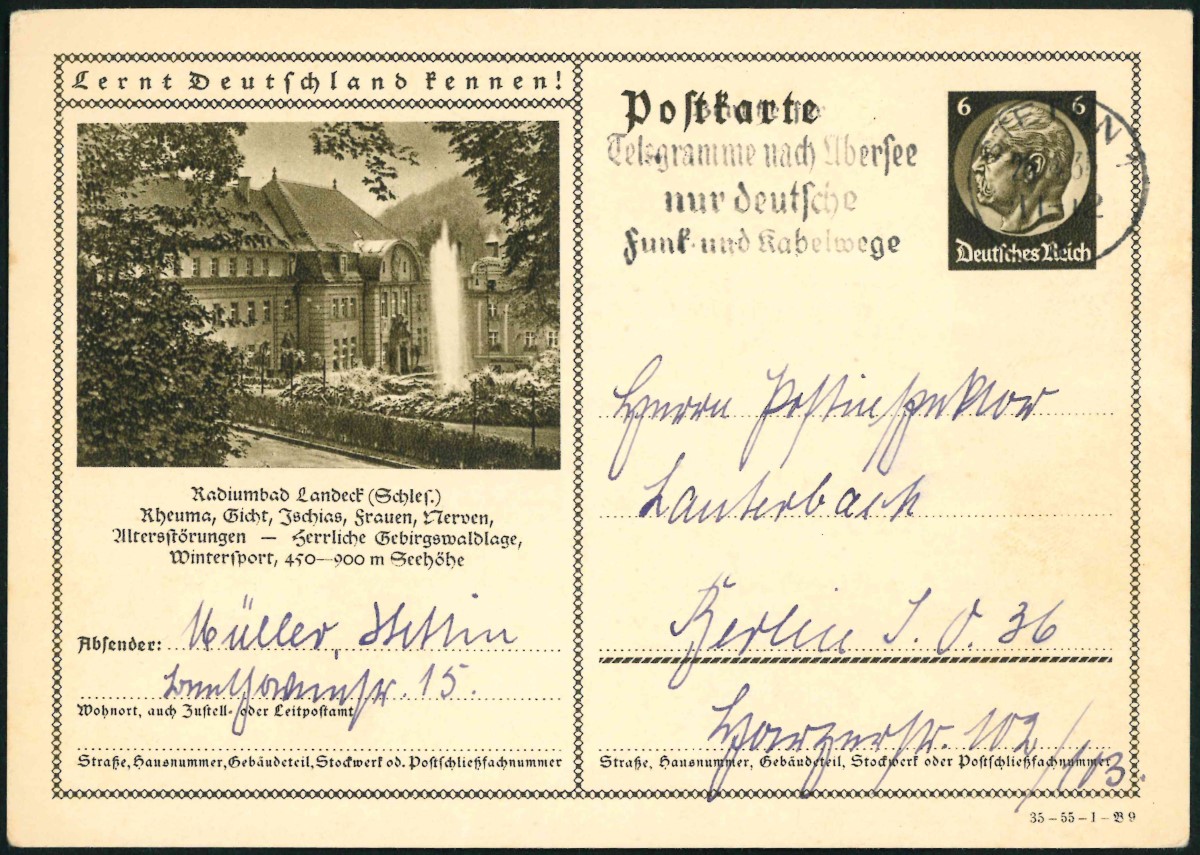 Lernt Deutschland kennen!
Radiumbad Landeck (Schles.)
Rheuma, Gicht, Ischias, Frauen, Nerven,
Altersstörungen — Herrliche Gebirgswaldlage,
Wintersport, 450—900 m Seehöhe
Absender: Müller, Stettin
Beethovenstr. 15.
Wohnort, auch Zustell- oder Leitpostamt
Straße, Hausnummer, Gebäudeteil, Stockwerk od. Postschließfachnummer
Postkarte
Telegramme nach Übersee
nur deutsche
Funk- und Kabelwege
6 6
Deutsches Reich
Herrn Postinspektor
Lauterbach
Berlin S. O. 36
Harzerstr. 102/103.
Straße, Hausnummer, Gebäudeteil, Stockwerk oder Postschließfachnummer
35-55-1-B9